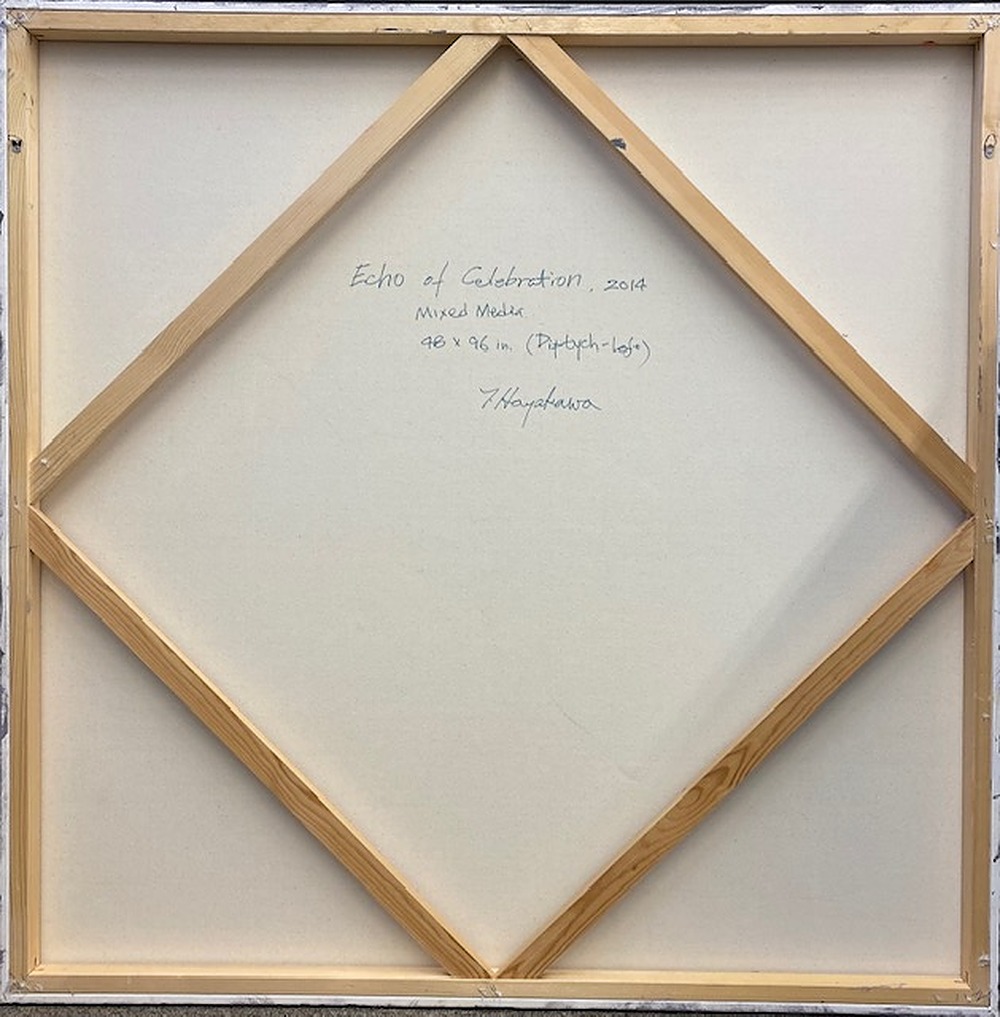 Echo of Celebration, 2014
Mixed Media
48 x 96 in. (Diptych-left)
T Hayakawa